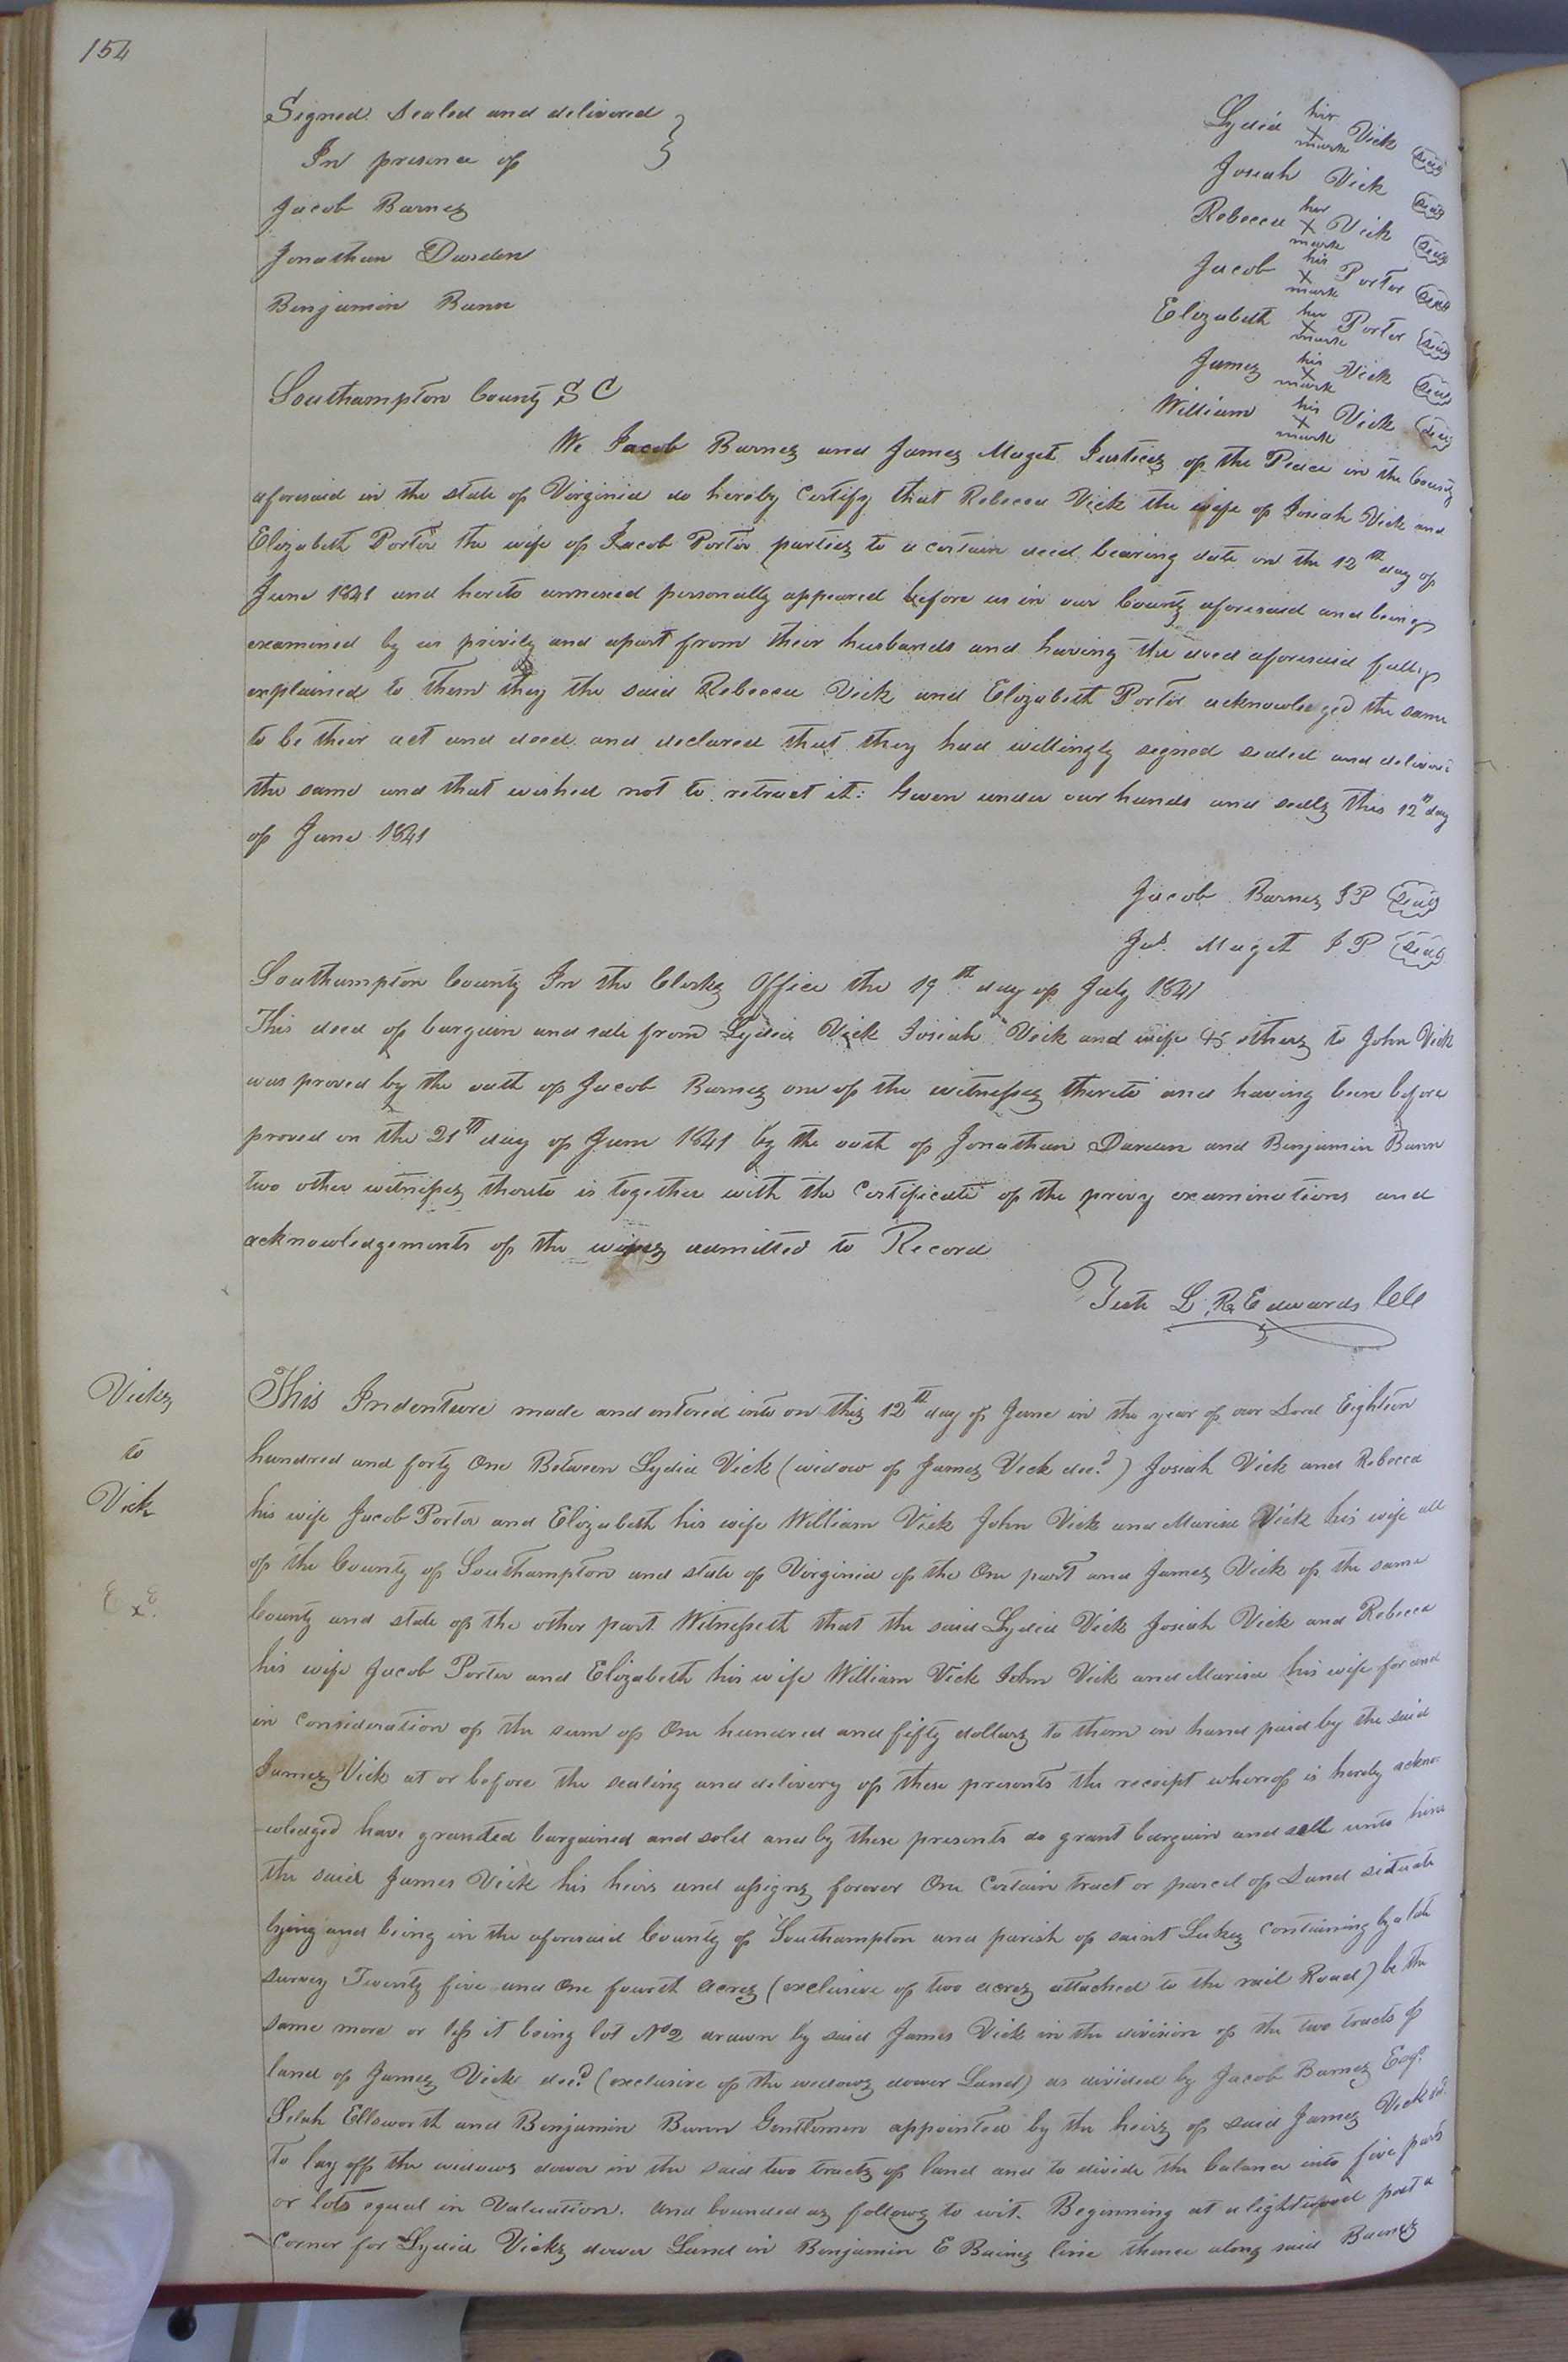 154
Signed Sealed and delivered }
In presence of
Jacob Barnes
Jonathan Darden
Benjamin Bunn
Lydia her x mark Vick Seal
Josiah Vick Seal
Rebecca her x mark Vick Seal
Jacob his x mark Porter Seal
Elizabeth her x mark Porter Seal
James his x mark Vick Seal
William his x mark Vick Seal
Southampton County S C
We Jacob Barnes and James Maget Justices of the Peace in the County
aforesaid in the state of Virginia do hereby Certify that Rebecca Vick the wife of Josiah Vick and
Elizabeth Porter the wife of Jacob Porter parties to a certain deed bearing date on the 12th day of
June 1841 and hereto annexed personally appeared before us in our County aforesaid and being
examined by us privily and apart from their husbands and having the deed aforesaid fully
explained to them they the said Rebecca Vick and Elizabeth Porter acknowledged the same
to be their act and deed and declared that they had willingly signed sealed and delivered
the same and that wished not to retract it: Given under our hands and seals this 12th day
of June 1841
Jacob Barnes JP Seal
Jas. Maget JP Seal
Southampton County In the Clerks Office the 19th day of July 1841
This deed of bargain and sale from Lydia Vick Josiah Vick and wife & others to John Vick
was proved by the oath of Jacob Barnes one of the witnesses thereto and having been before
proved on the 21th day of June 1841 by the oath of Jonathan Darden and Benjamin Bunn
two other witnesses thereto is together with the Certificate of the privy examinations and
acknowledgements of the wives admitted to Record
Teste L. R. Edwards CC
Vicks
to
Vick
Exd.
This Indenture made and entered into on this 12th day of June in the year of our Lord Eighteen
hundred and forty One Between Lydia Vick (widow of James Vick decd.) Josiah Vick and Rebecca
his wife Jacob Porter and Elizabeth his wife William Vick John Vick and Marisa Vick his wife all
of the County of Southampton and state of Virginia of the One part and James Vick of the same
County and state of the other part Witnesseth that the said Lydia Vick Josiah Vick and Rebecca
his wife Jacob Porter and Elizabeth his wife William Vick John Vick and Marisa his wife for and
in Consideration of the sum of One hundred and fifty dollars to them in hand paid by the said
James Vick at or before the sealing and delivery of these presents the receipt whereof is hereby ackno-
-wledged have granted bargained and sold and by these presents do grant bargain and sell unto him
the said James Vick his heirs and assigns forever One Certain tract or parcel of Land situate
lying and being in the aforesaid County of Southampton and parish of saint Lukes Containing by a late
survey Twenty five and One fourth acres (exclusive of two acres attached to the rail Road) be the
same more or less it being lot No 2 drawn by said James Vick in the division of the two tracts of
land of James Vick decd. (exclusive of the widows dower Land) as divided by Jacob Barnes Esqr.
Selah Ellsworth and Benjamin Bunn Gentlemen appointed by the heirs of said James Vick dcd.
To lay off the widows dower in the said two tracts of land and to divide the balance into five parts
or lots equal in Valuation. And bounded as follows to wit. Beginning at a lightwood post a
Corner for Lydia Vicks dower Land in Benjamin E Baines line thence along said Baines